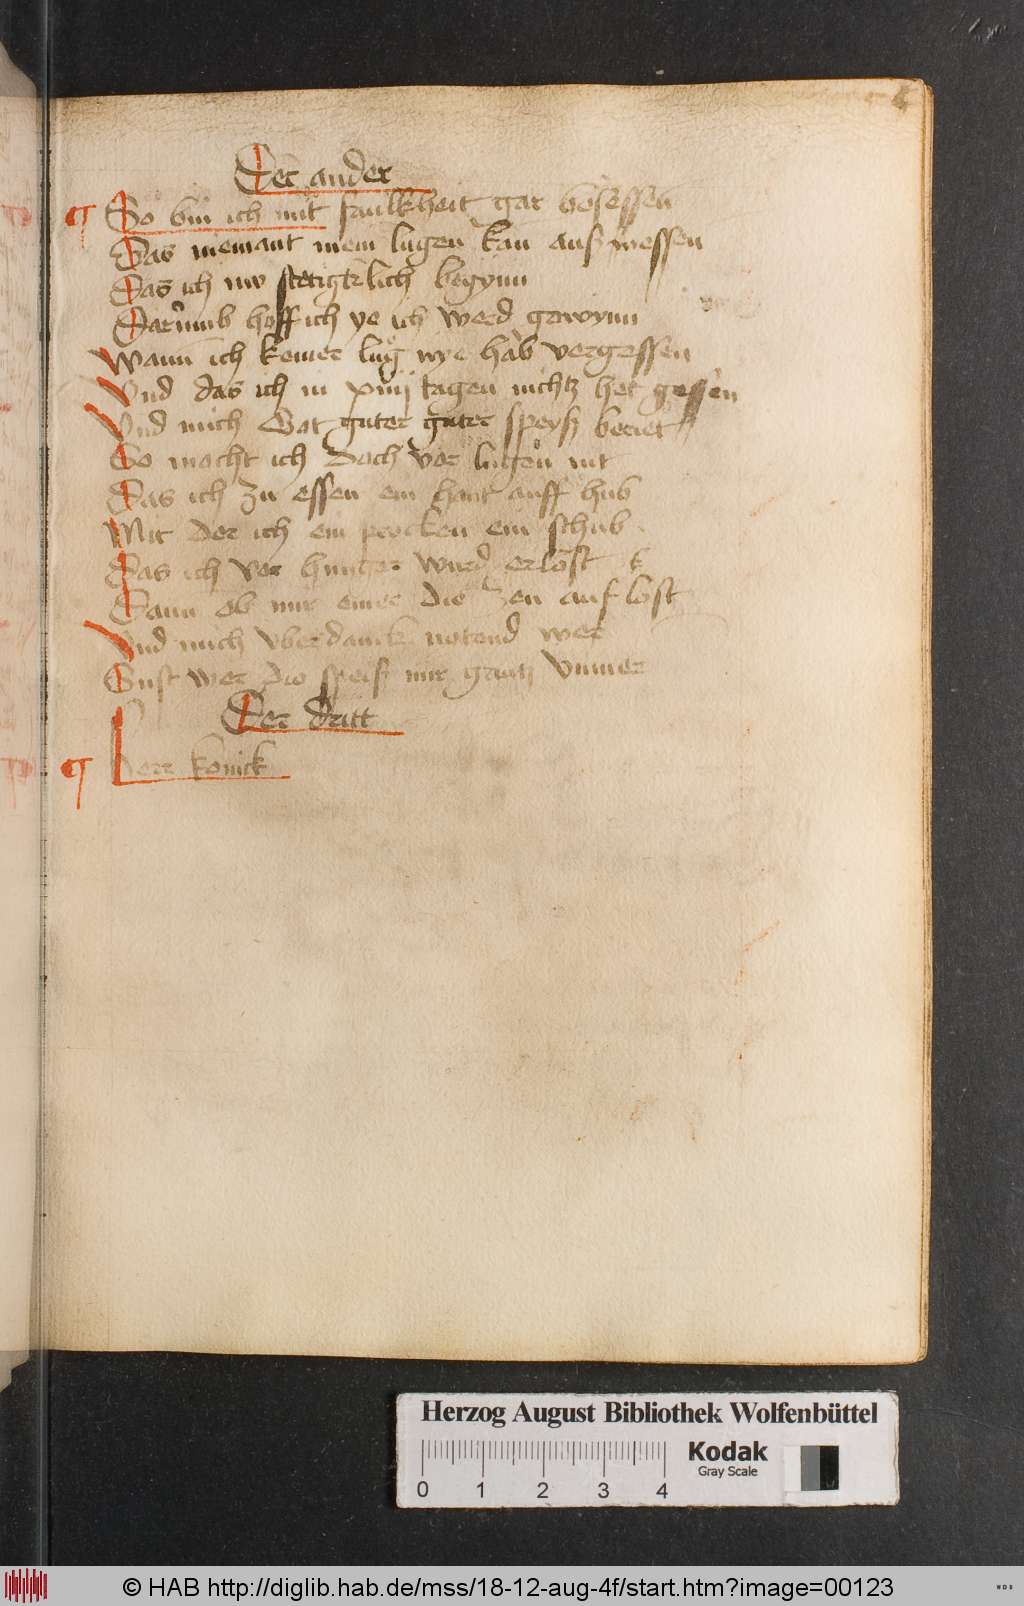 Der ander
So bin ich mit faulkheit gar bösessen
Das niemant mein lugen kan auß messen
Das ich nw stetigklich begynn
Darumb hoff ich ye ich werd gewynn
Wann ich keiner lug nye hab vergessen
Vnd das ich in xiiij tagen nichtz het gessen
Vnd mich Got guter guter speyß beriet
So mocht ich doch vor lugen nit
Das ich zu essen ein hant auff hub
Mit der ich ein procken ein schub
Das ich vor hunger wurd erlost
Dann ob mir einer die zen auf lost
Vnd mich vber danck notend wer
Sust wer die speiß mir gantz vnmer
Der dritt
Herr konick
Herzog August Bibliothek Wolfenbüttel
Kodak
Gray Scale
0 1 2 3 4
© HAB http://diglib.hab.de/mss/18-12-aug-4f/start.htm?image=00123